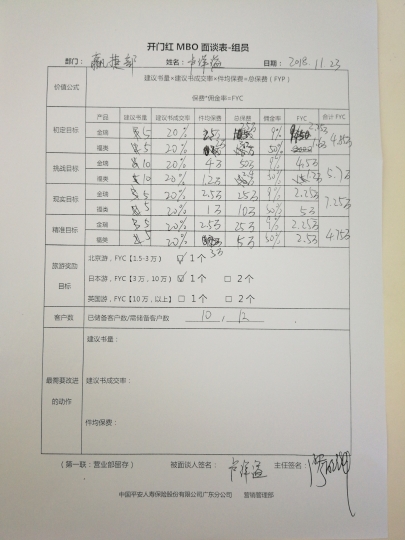 开门红 MBO 面谈表-组员
部门： 姓名： 日期：2018.11.23
价值公式
建议书量×建议书成交率×件均保费=总保费（FYP）
保费*佣金率=FYC
产品 建议书量 建议书成交率 件均保费 总保费 佣金率 FYC 合计 FYC
初定目标
金瑞 5 20% 9%
福类 5 20% 50%
挑战目标
金瑞 10 20% 4万 9%
福类 10 20%
现实目标
金瑞 5 20% 2.5万 25万 9% 2.25万
福类 5 20% 1万 10万 50% 5万
7.25万
精准目标
金瑞 5 20% 2.5万 25万 9% 2.25万
福类 5 20% 5万 50% 2.5万
4.75万
旅游奖励目标
北京游，FYC【1.5-3万】 ☑ 1个
日本游，FYC【3万，10万】 ☑ 1个 □ 2个
英国游，FYC【10万，以上】 □ 1个 □ 2个
客户数 已储备客户数/需储备客户数 10，12
最需要改进的动作
建议书量：
建议书成交率：
件均保费：
（第一联：营业部留存） 被面谈人签名： 主任签名：
中国平安人寿保险股份有限公司广东分公司 营销管理部